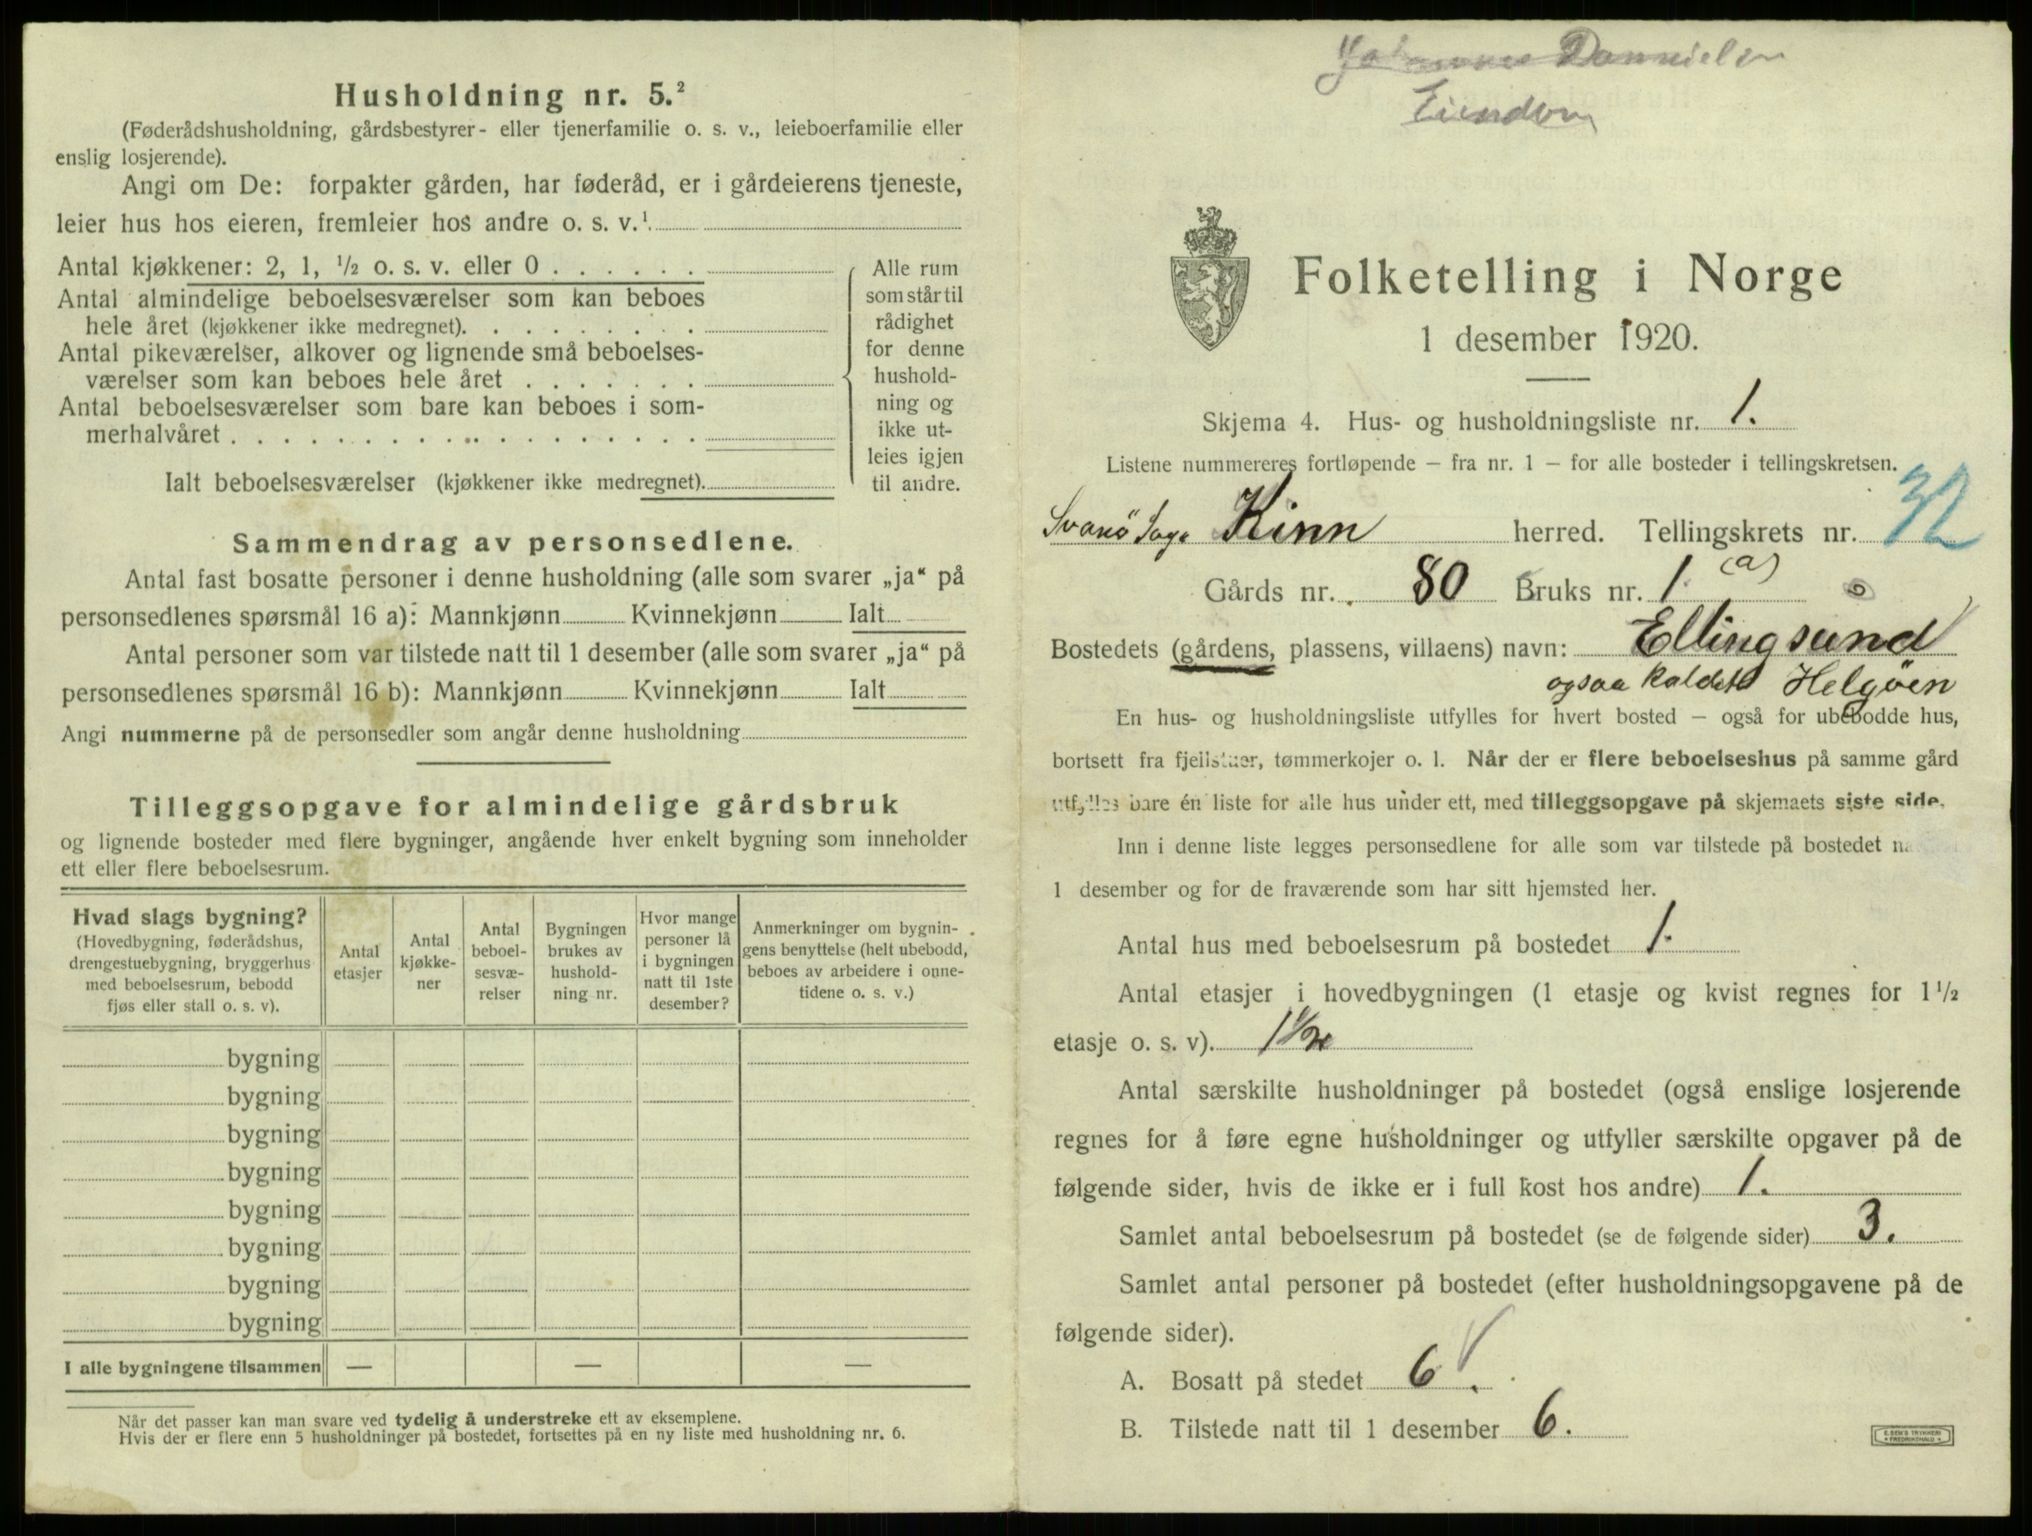 Husholdning nr. 5.²
(Føderådshusholdning, gårdsbestyrer- eller tjenerfamilie o. s. v., leieboerfamilie eller
enslig losjerende).
Angi om De: forpakter gården, har føderåd, er i gårdeierens tjeneste,
leier hus hos eieren, fremleier hos andre o. s. v.¹
Antal kjøkkener: 2, 1, ½ o. s. v. eller 0
Antal almindelige beboelsesværelser som kan beboes
hele året (kjøkkener ikke medregnet).
Antal pikeværelser, alkover og lignende små beboelses-
værelser som kan beboes hele året
Antal beboelsesværelser som bare kan beboes i som-
merhalvåret
Ialt beboelsesværelser (kjøkkener ikke medregnet).
Alle rum
som står til
rådighet
for denne
hushold-
ning og
ikke ut-
leies igjen
til andre.
Sammendrag av personsedlene.
Antal fast bosatte personer i denne husholdning (alle som svarer „ja" på
personsedlenes spørsmål 16 a): Mannkjønn Kvinnekjønn Ialt
Antal personer som var tilstede natt til 1 desember (alle som svarer „ja" på
personsedlenes spørsmål 16 b): Mannkjønn Kvinnekjønn Ialt
Angi nummerne på de personsedler som angår denne husholdning
Tilleggsopgave for almindelige gårdsbruk
og lignende bosteder med flere bygninger, angående hver enkelt bygning som inneholder
ett eller flere beboelsesrum.
Hvad slags bygning?
(Hovedbygning, føderådshus,
drengestuebygning, bryggerhus
med beboelsesrum, bebodd
fjøs eller stall o. s. v).
Antal
etasjer
Antal
kjøkke-
ner
Antal
beboel-
sesvæ-
relser
Bygningen
brukes av
hushold-
ning nr.
Hvor mange
personer lå
i bygningen
natt til 1ste
desember?
Anmerkninger om bygnin-
gens benyttelse (helt ubebodd,
beboes av arbeidere i onne-
tidene o. s. v.)
bygning
bygning
bygning
bygning
bygning
bygning
bygning
bygning
I alle bygningene tilsammen — — —
Når det passer kan man svare ved tydelig å understreke ett av eksemplene.
Hvis der er flere enn 5 husholdninger på bostedet, fortsettes på en ny liste med husholdning nr. 6.
Johannes Dannielsen
Folketelling i Norge
1 desember 1920.
Skjema 4. Hus- og husholdningsliste nr. 1.
Listene nummereres fortløpende – fra nr. 1 – for alle bosteder i tellingskretsen.
Svanö Sogn Kinn herred. Tellingskrets nr. 32
Gårds nr. 80 Bruks nr. 1. (a)
Bostedets (gårdens, plassens, villaens) navn: Ellingsund
ogsaa kaldet Helgöen
En hus- og husholdningsliste utfylles for hvert bosted – også for ubebodde hus,
bortsett fra fjellstuer, tømmerkojer o. l. Når der er flere beboelseshus på samme gård
utfylles bare én liste for alle hus under ett, med tilleggsopgave på skjemaets siste side.
Inn i denne liste legges personsedlene for alle som var tilstede på bostedet
1 desember og for de fraværende som har sitt hjemsted her.
Antal hus med beboelsesrum på bostedet 1.
Antal etasjer i hovedbygningen (1 etasje og kvist regnes for 1 ½
etasje o. s. v). 1½
Antal særskilte husholdninger på bostedet (også enslige losjerende
regnes for å føre egne husholdninger og utfyller særskilte opgaver på de
følgende sider, hvis de ikke er i full kost hos andre) 1.
Samlet antal beboelsesrum på bostedet (se de følgende sider) 3.
Samlet antal personer på bostedet (efter husholdningsopgavene på de
følgende sider).
A. Bosatt på stedet 6.
B. Tilstede natt til 1 desember 6.
E. SEM'S TRYKKERI
FREDRIKSHALD